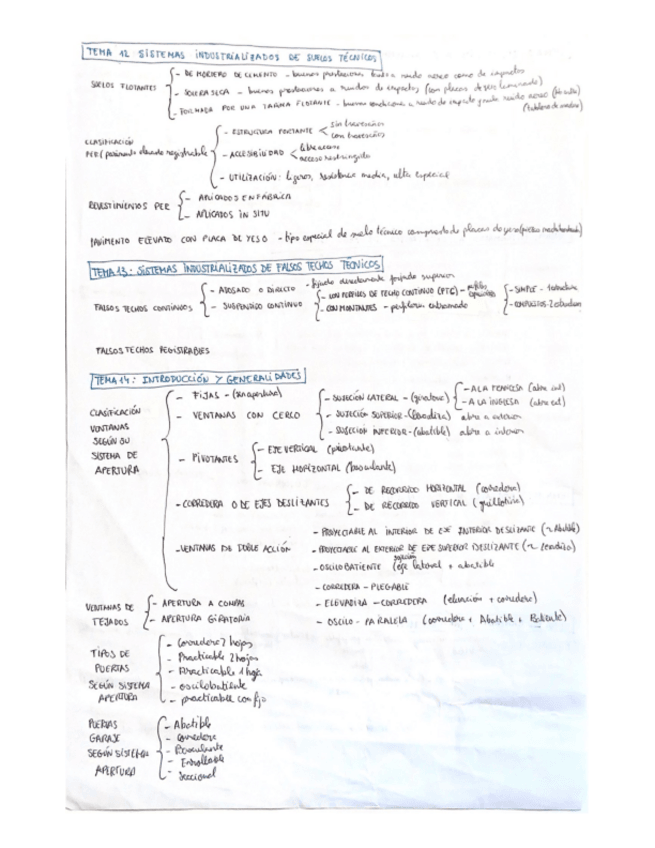 TEMA 12 SISTEMAS INDUSTRIALIZADOS DE SUELOS TÉCNICOS
SUELOS FLOTANTES
- DE MORTERO DE CEMENTO - buenas prestaciones tanto a ruido aereo como de impactos
- SOLERA SECA - buenas prestaciones a ruidos de impactos (con placas de yeso laminado)
- FORMADA POR UNA TARIMA FLOTANTE - buenas condiciones a ruido de impacto y ruido aereo
(tablero de madera)
CLASIFICACIÓN
PER (pavimento elevado registrable)
- ESTRUCTURA PORTANTE
sin travesaños
con travesaños
- ACCESIBILIDAD
libre acceso
acceso restringido
- UTILIZACIÓN: ligeros, resistencia media, alta especial
REVESTIMIENTOS PER
- APLICADOS EN FÁBRICA
- APLICADOS IN SITU
PAVIMENTO ELEVADO CON PLACA DE YESO - tipo especial de suelo técnico compuesto de placas de yeso
TEMA 13: SISTEMAS INDUSTRIALIZADOS DE FALSOS TECHOS TÉCNICOS
FALSOS TECHOS CONTINUOS
- ADOSADO O DIRECTO - fijado directamente forjado superior
- SUSPENDIDO CONTINUO
- CON PERFILES DE TECHO CONTINUO (PTC) - perfiles especiales
- CON MONTANTES - perfileria entramado
- SIMPLE - 1 estructura
- COMPUESTOS - 2 estructuras
FALSOS TECHOS REGISTRABLES
TEMA 14: INTRODUCCIÓN Y GENERALIDADES
CLASIFICACIÓN
VENTANAS
SEGÚN SU
SISTEMA DE
APERTURA
- FIJAS - (sin apertura)
- VENTANAS CON CERCO
- SUJECIÓN LATERAL - (giratoria)
- A LA FRANCESA (abre int)
- A LA INGLESA (abre ext)
- SUJECIÓN SUPERIOR - (lendiza) abre a exterior
- SUJECIÓN INFERIOR - (abatible) abre a interior
- PIVOTANTES
- EJE VERTICAL (pivotante)
- EJE HORIZONTAL (basculante)
- CORREDERA O DE EJES DESLIZANTES
- DE RECORRIDO HORIZONTAL (corredera)
- DE RECORRIDO VERTICAL (guillotina)
- VENTANAS DE DOBLE ACCIÓN
- PROYECTABLE AL INTERIOR DE EJE INFERIOR DESLIZANTE (~ Abatible)
- PROYECTABLE AL EXTERIOR DE EJE SUPERIOR DESLIZANTE (~ lendiza)
- OSCILOBATIENTE (eje lateral + abatible
- CORREDERA - PLEGABLE
- ELEVADIZA - CORREDERA (elevación + corredera)
- OSCILO - PARALELA (corredera + Abatible + Batiente)
VENTANAS DE
TEJADOS
- APERTURA A COMPAS
- APERTURA GIRATORIA
TIPOS DE
PUERTAS
SEGÚN SISTEMA
APERTURA
- Corredera 2 hojas
- Practicable 2 hojas
- Practicable 1 hoja
- oscilobatiente
- practicable con fijo
PUERTAS
GARAJE
SEGÚN SISTEMA
APERTURA
- Abatible
- Corredera
- Basculante
- Enrollable
- Seccional